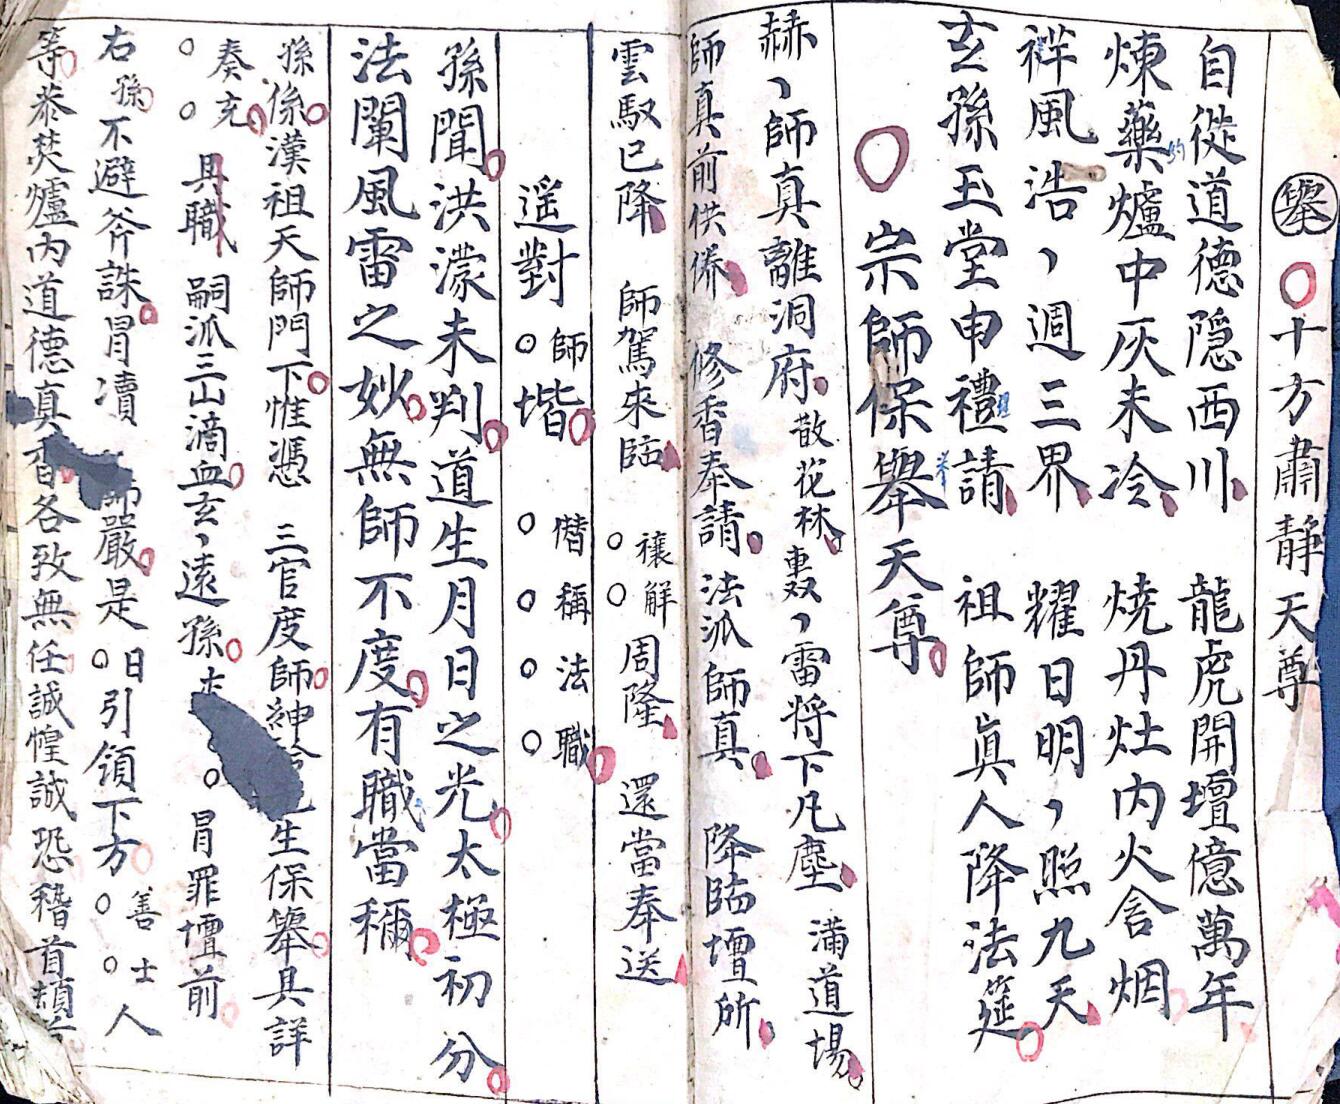 舉○十方肅靜天尊
自從道德隱西川 龍虎開壇億萬年
煉藥爐中灰未冷 燒丹灶内火含烟
祥風浩丶週三界 耀日明丶照九天
玄孫玉堂申禮請 祖師眞人降法筵
○宗師保舉天尊
赫丶師真離洞府 散花林 轟丶雷将下凡塵 满道場
師真前供養 修香奉請 法派師真 降臨壇所
雲馭已降 師駕來臨 ○○禳解周隆 還當奉送
遥對○師堦 ○○○○僭稱法職
孫聞洪濛未判道生月日之光太極初分
法闡風雷之妙無師不度有職當稱
孫係漢祖天師門下惟憑 三官度師神 生保舉具詳
○○奏充 具職 嗣派三山滴血玄丶遠孫 ○ 冒罪壇前
右孫不避斧誅冒凟 師嚴是○日引領下方○○善士人
等恭焚爐内道德真香各致無任誠惶誠恐稽首頓